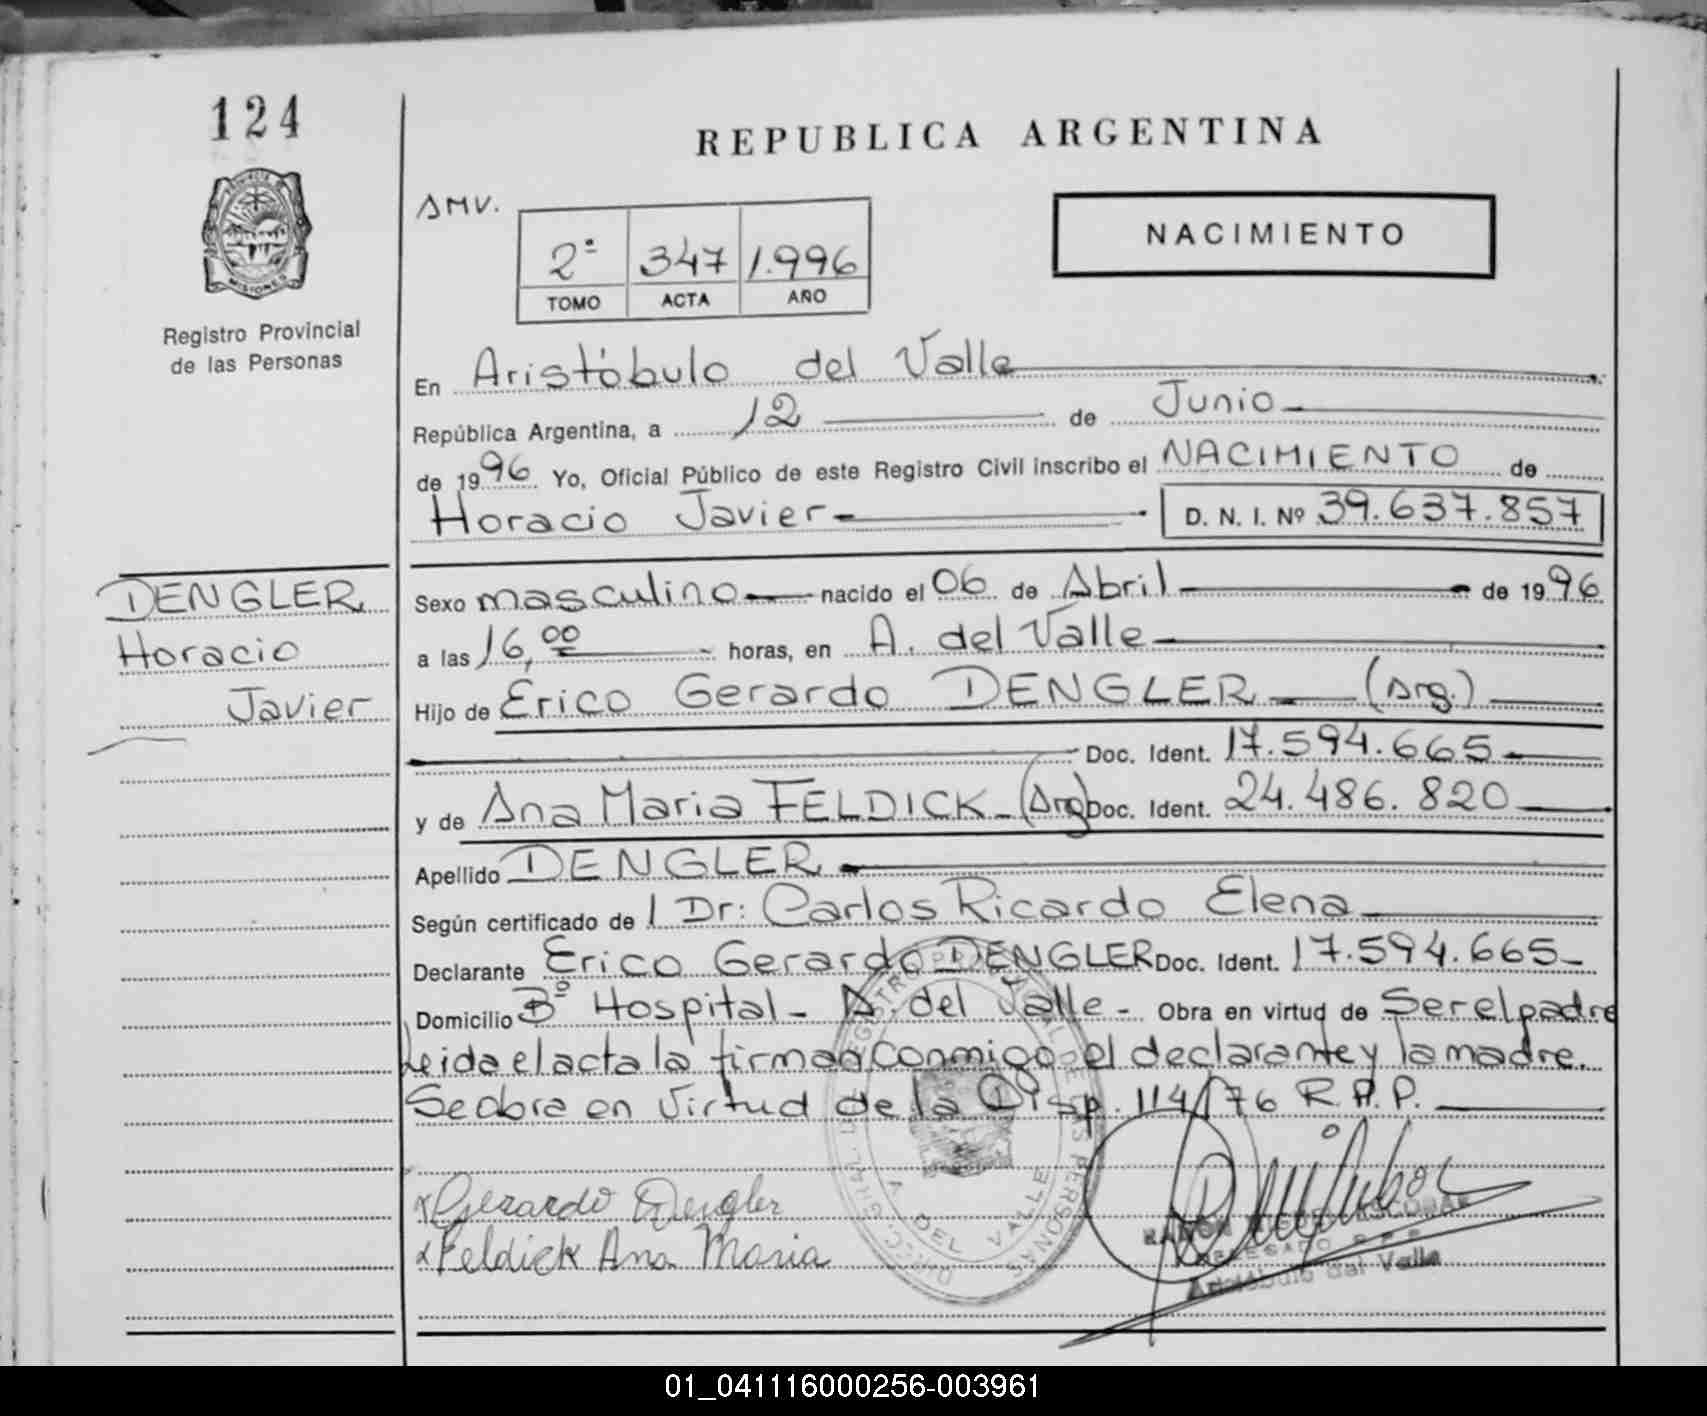 124
PROVINCIA DE
MISIONES
Registro Provincial
de las Personas
REPUBLICA ARGENTINA
AMV.
2º 347 1.996
TOMO ACTA AÑO
NACIMIENTO
En Aristóbulo del Valle
República Argentina, a 12 de Junio
de 1996 Yo, Oficial Público de este Registro Civil inscribo el NACIMIENTO de
Horacio Javier D. N. I. Nº 39.637.857
DENGLER
Horacio
Javier
Sexo masculino nacido el 06 de Abril de 1996
a las 16,00 horas, en A. del Valle
Hijo de Erico Gerardo DENGLER (Arg.)
Doc. Ident. 17.594.665
y de Ana Maria FELDICK (Arg) Doc. Ident. 24.486.820
Apellido DENGLER
Según certificado de Dr: Carlos Ricardo Elena
Declarante Erico Gerardo DENGLER Doc. Ident. 17.594.665
Domicilio Bº Hospital - A. del Valle - Obra en virtud de Ser el padre
Leida el acta la firman conmigo el declarante y la madre.
Se obra en Virtud de la Disp. 114/76 R.P.P.
x Gerardo Dengler
x Feldick Ana Maria
A. DEL VALLE
RAMON MIGUEL ESCOBAR
DELEGADO R.P.P.
Aristóbulo del Valle
01_041116000256-003961